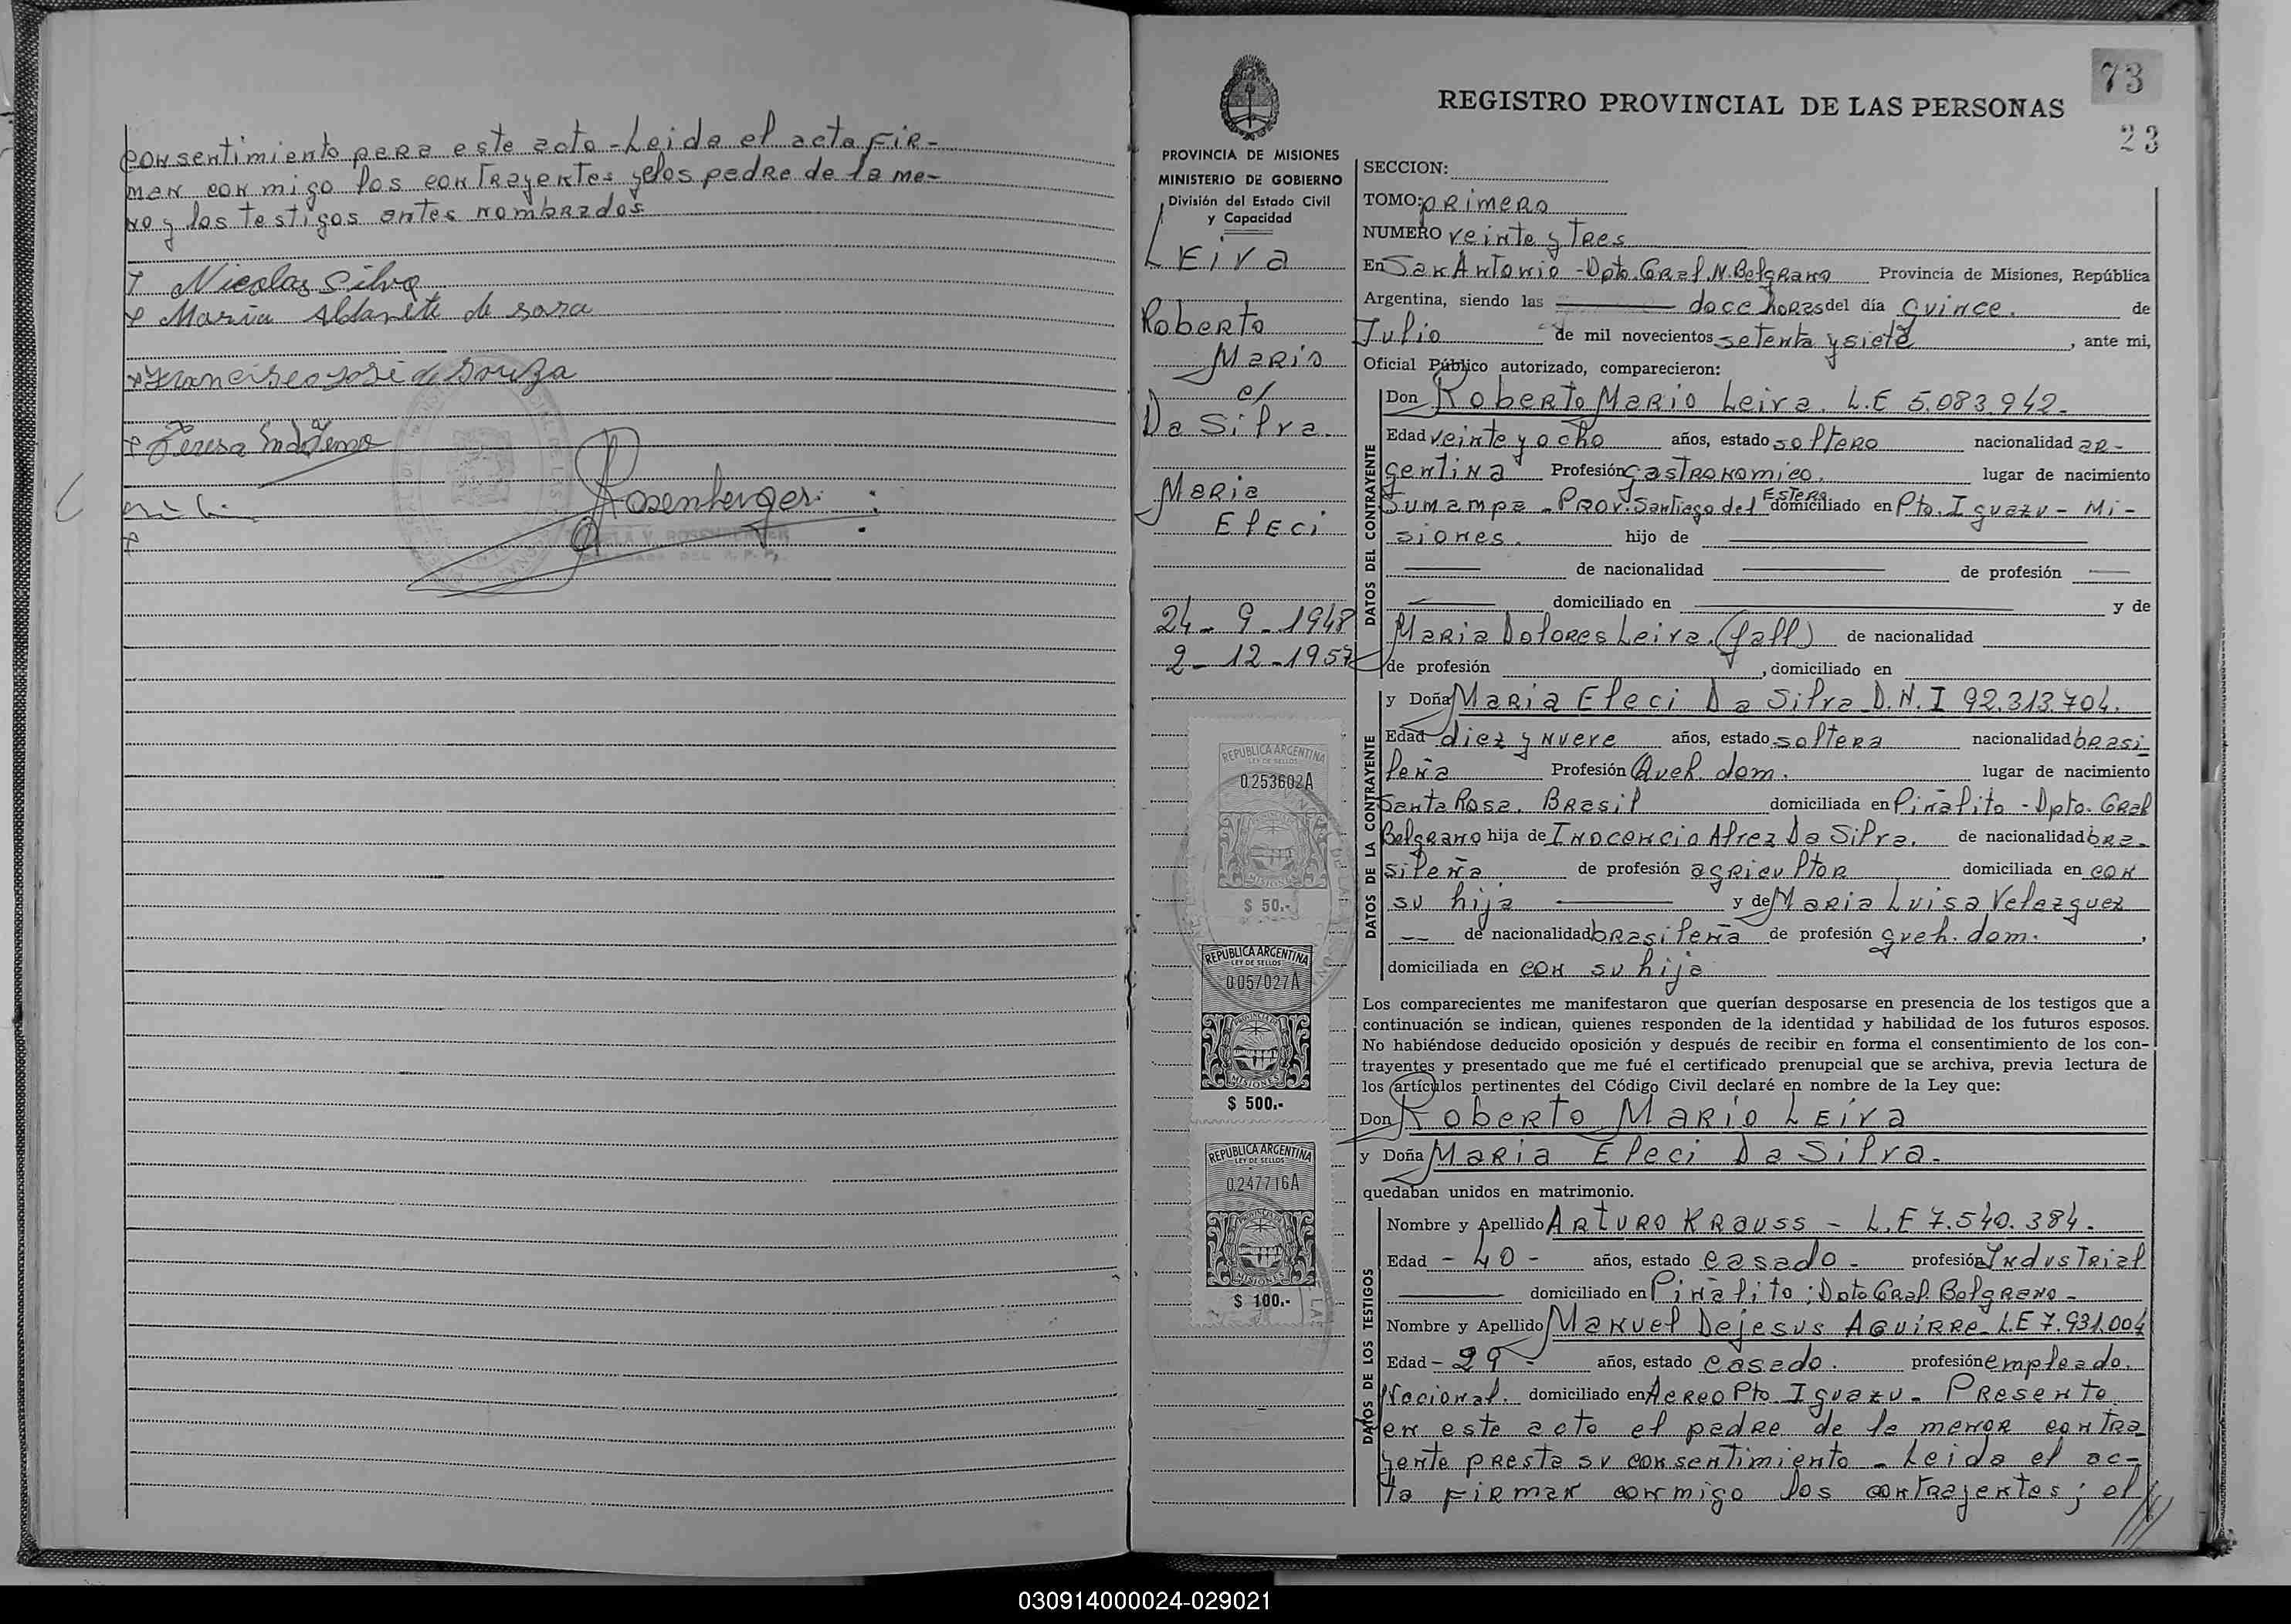 consentimiento para este acto - Leida el acta FiR-
man conmigo los contrayentes y los padre de la me-
no y los testigos antes nombrados
Nicolas Silva
Maria Aldarete de
Francisco José de Souza
Teresa
Rosenberger
73
23
REGISTRO PROVINCIAL DE LAS PERSONAS
PROVINCIA DE MISIONES
MINISTERIO DE GOBIERNO
División del Estado Civil
y Capacidad
Leiva
Roberto
Mario
c/
Da Silva.
Maria
Eleci
24 - 9 - 1948
2 - 12 - 1957
REPUBLICA ARGENTINA
LEY DE SELLOS
0.253602A
MISIONES
$ 50.-
REPUBLICA ARGENTINA
LEY DE SELLOS
0.057027A
PROVINCIA DE
MISIONES
$ 500.-
REPUBLICA ARGENTINA
LEY DE SELLOS
0.247716A
PROVINCIA DE
MISIONES
$ 100.-
SECCION:
TOMO: primero
NUMERO veinte y tres
En San Antonio - Dpto. Gral. N. Belgrano Provincia de Misiones, República
Argentina, siendo las doce horas del día quince. de
Julio de mil novecientos setenta y siete, ante mi,
Oficial Público autorizado, comparecieron:
DATOS DEL CONTRAYENTE
Don Roberto Mario Leiva. L.E 5.083.942.
Edad veinte y ocho años, estado soltero nacionalidad ar-
gentina Profesión gastronomico. lugar de nacimiento
Sumampa - Prov. Santiago del Estero domiciliado en Pto. Iguazu - Mi-
siones. hijo de
de nacionalidad de profesión
domiciliado en y de
Maria Dolores Leiva. (fall) de nacionalidad
de profesión , domiciliado en
DATOS DE LA CONTRAYENTE
y Doña Maria Eleci Da Silva D.N.I 92.313.704.
Edad diez y nueve años, estado soltera nacionalidad brasi
leña Profesión Queh. dom. lugar de nacimiento
Santa Rosa. Brasil domiciliada en Piñalito - Dpto. Gral
Belgrano hija de Inocencio Alvez Da Silva. de nacionalidad bra-
sileña de profesión agricultor domiciliada en con
su hija y de Maria Luisa Velezquez
-- de nacionalidad brasileña de profesión queh. dom. ,
domiciliada en con su hija
Los comparecientes me manifestaron que querían desposarse en presencia de los testigos que a
continuación se indican, quienes responden de la identidad y habilidad de los futuros esposos.
No habiéndose deducido oposición y después de recibir en forma el consentimiento de los con-
trayentes y presentado que me fué el certificado prenupcial que se archiva, previa lectura de
los artículos pertinentes del Código Civil declaré en nombre de la Ley que:
Don Roberto Mario Leiva
y Doña Maria Eleci Da Silva.
quedaban unidos en matrimonio.
DATOS DE LOS TESTIGOS
Nombre y Apellido Arturo Krauss - L.E 7.540.384.
Edad - 40 - años, estado casado - profesión Industrial
domiciliado en Piñalito ; Dpto Gral. Belgrano -
Nombre y Apellido Manuel Dejesus Aguirre - L.E 7.931.004
Edad - 29 - años, estado casado. profesión empleado.
Nacional. domiciliado en Aereo Pto. Iguazu - Presente
en este acto el padre de la menor contra
yente presta su consentimiento - Leida el ac-
ta firman conmigo los contrayentes ; el
030914000024-029021